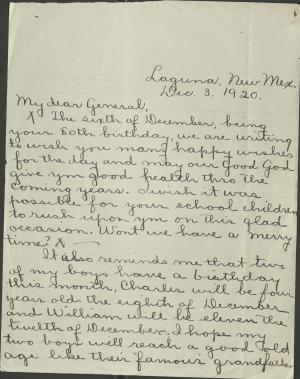 Laguna, New Mex.
Dec. 3, 1920.
My dear General,
X The sixth of December, being
your 80th birthday, we are writing
to wish you many happy wishes
for the day and may our Good God
give you good health thro the
coming years. I wish it was
possible for your school children
to rush upon you on this glad
occasion. Wont we have a merry
time? X —
It also reminds me that two
of my boys have a birthday
this month, Charles will be four
years old the eighth of December
and William will be eleven the
twelth of December. I hope my
two boys well reach a good old
age like their famous grandfather